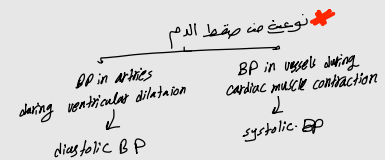 نوعين من ضغط الدم
BP in artries
during ventricular dilataion
diastolic BP
BP in vessels during
cardiac muscle contraction
systolic BP